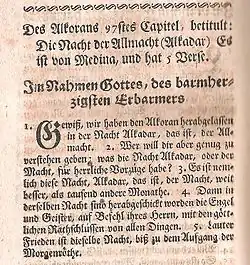 Des Alkorans 97stes Capitel, betitult:
Die Nacht der Allmacht (Alkadar) Es
ist von Medina, und hat 5 Verse.
Im Nahmen Gottes, des barmher-
zigsten Erbarmers
1. Gewiß, wir haben den Alkoran herabgelassen
in der Nacht Alkadar, das ist, der All-
macht. 2. Wer will dir aber genug zu
verstehen geben, was die Nacht Alkadar, oder der
Macht, für herrliche Vorzüge habe? 3. Es ist neme
lich diese Nacht Alkadar, das ist, der Macht, weit
besser, als tausend andre Monathe. 4. Dann in
derselben Nacht sind herabgeschickt worden die Engel
und Geister, auf Befehl ihres Herrn, mit den gött-
lichen Rathschlüssen von allen Dingen. 5. Lauter
Frieden ist dieselbe Nacht, biß zu dem Aufgang der
Morgenröthe.